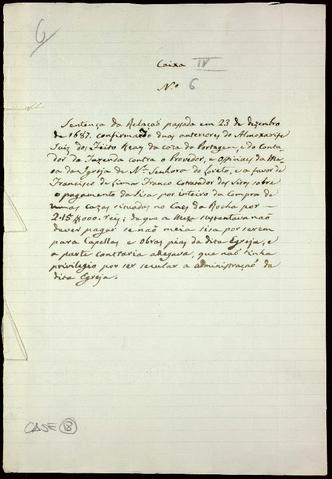 6
Caixa IV
N.º 6
Sentença da Relação passada em 23 de dezembro
de 1687. confirmando duas anteriores do Almoxarife
Juiz dos Feitos Reaes da caza do Portagem, e do Conta-
dor da Fazenda contra o Provedor, e Officiaes da Me-
sa da Igreja de N.ª Senhora do Loreto, e a favor de
Francisco de Franco Contador dos sobre
o pagamento da Siza por inteiro da Compra de
humas cazas situadas no Caes da Rocha por
245.8000. reis; de que a Meza sustentava não
dever pagar se não meia siza por serem
para Capellas e Obras pias da dita Egreja, e
a parte contraria allegava, que não tinha
privilegio por ser secular a administração da
dita Egreja.
CASE 18